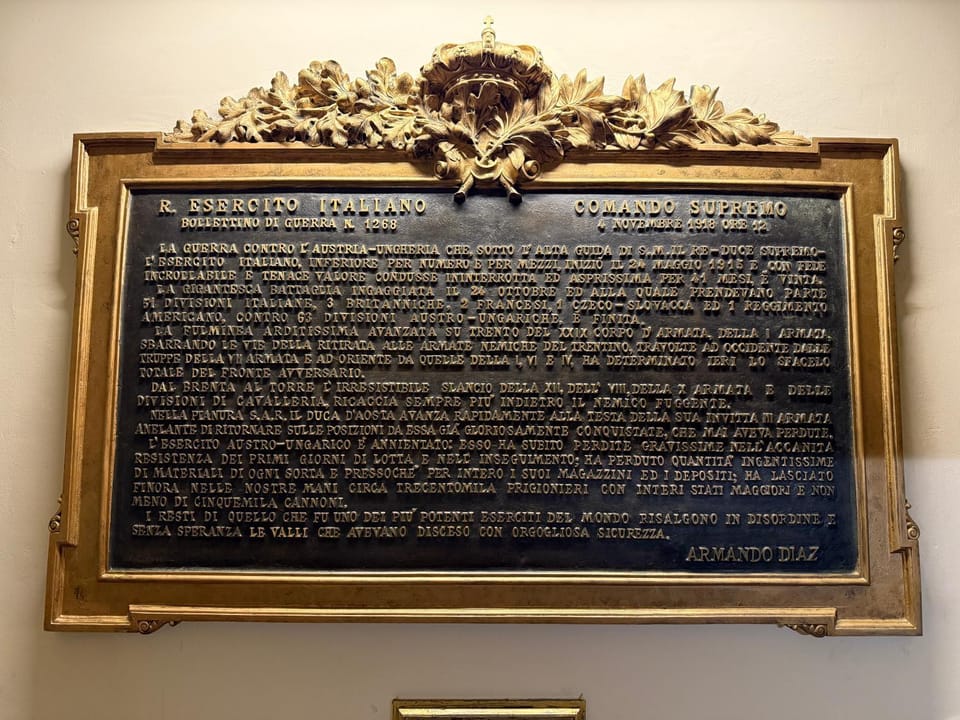 R. ESERCITO ITALIANO
COMANDO SUPREMO
BOLLETTINO DI GUERRA N. 1268
4 NOVEMBRE 1918 ORE 12
LA GUERRA CONTRO L'AUSTRIA-UNGHERIA CHE, SOTTO L'ALTA GUIDA DI S.M. IL RE-DUCE SUPREMO-
L'ESERCITO ITALIANO, INFERIORE PER NUMERO E PER MEZZI, INIZIÒ IL 24 MAGGIO 1915 E CON FEDE
INCROLLABILE E TENACE VALORE CONDUSSE ININTERROTTA ED ASPRISSIMA PER 41 MESI, È VINTA.
LA GIGANTESCA BATTAGLIA INGAGGIATA IL 24 OTTOBRE ED ALLA QUALE PRENDEVANO PARTE
51 DIVISIONI ITALIANE, 3 BRITANNICHE, 2 FRANCESI, 1 CZECO-SLOVACCA ED 1 REGGIMENTO
AMERICANO, CONTRO 63 DIVISIONI AUSTRO-UNGARICHE, È FINITA.
LA FULMINEA ARDITISSIMA AVANZATA SU TRENTO DEL XXIX CORPO D'ARMATA DELLA I ARMATA,
SBARRANDO LE VIE DELLA RITIRATA ALLE ARMATE NEMICHE DEL TRENTINO, TRAVOLTE AD OCCIDENTE DALLE
TRUPPE DELLA VII ARMATA E AD ORIENTE DA QUELLE DELLA I, VI E IV, HA DETERMINATO IERI LO SFACELO
TOTALE DEL FRONTE AVVERSARIO.
DAL BRENTA AL TORRE L'IRRESISTIBILE SLANCIO DELLA XII, DELL' VIII, DELLA X ARMATA E DELLE
DIVISIONI DI CAVALLERIA, RICACCIA SEMPRE PIU' INDIETRO IL NEMICO FUGGENTE.
NELLA PIANURA S.A.R. IL DUCA D'AOSTA AVANZA RAPIDAMENTE ALLA TESTA DELLA SUA INVITTA III ARMATA
ANELANTE DI RITORNARE SULLE POSIZIONI DA ESSA GIÀ GLORIOSAMENTE CONQUISTATE, CHE MAI AVEVA PERDUTE.
L'ESERCITO AUSTRO-UNGARICO È ANNIENTATO: ESSO HA SUBITO PERDITE GRAVISSIME NELL'ACCANITA
RESISTENZA DEI PRIMI GIORNI DI LOTTA E NELL' INSEGUIMENTO; HA PERDUTO QUANTITA' INGENTISSIME
DI MATERIALI DI OGNI SORTA E PRESSOCHE' PER INTERO I SUOI MAGAZZINI ED I DEPOSITI; HA LASCIATO
FINORA NELLE NOSTRE MANI CIRCA TRECENTOMILA PRIGIONIERI CON INTERI STATI MAGGIORI E NON
MENO DI CINQUEMILA CANNONI.
I RESTI DI QUELLO CHE FU UNO DEI PIU' POTENTI ESERCITI DEL MONDO RISALGONO IN DISORDINE E
SENZA SPERANZA LE VALLI CHE AVEVANO DISCESO CON ORGOGLIOSA SICUREZZA.
ARMANDO DIAZ